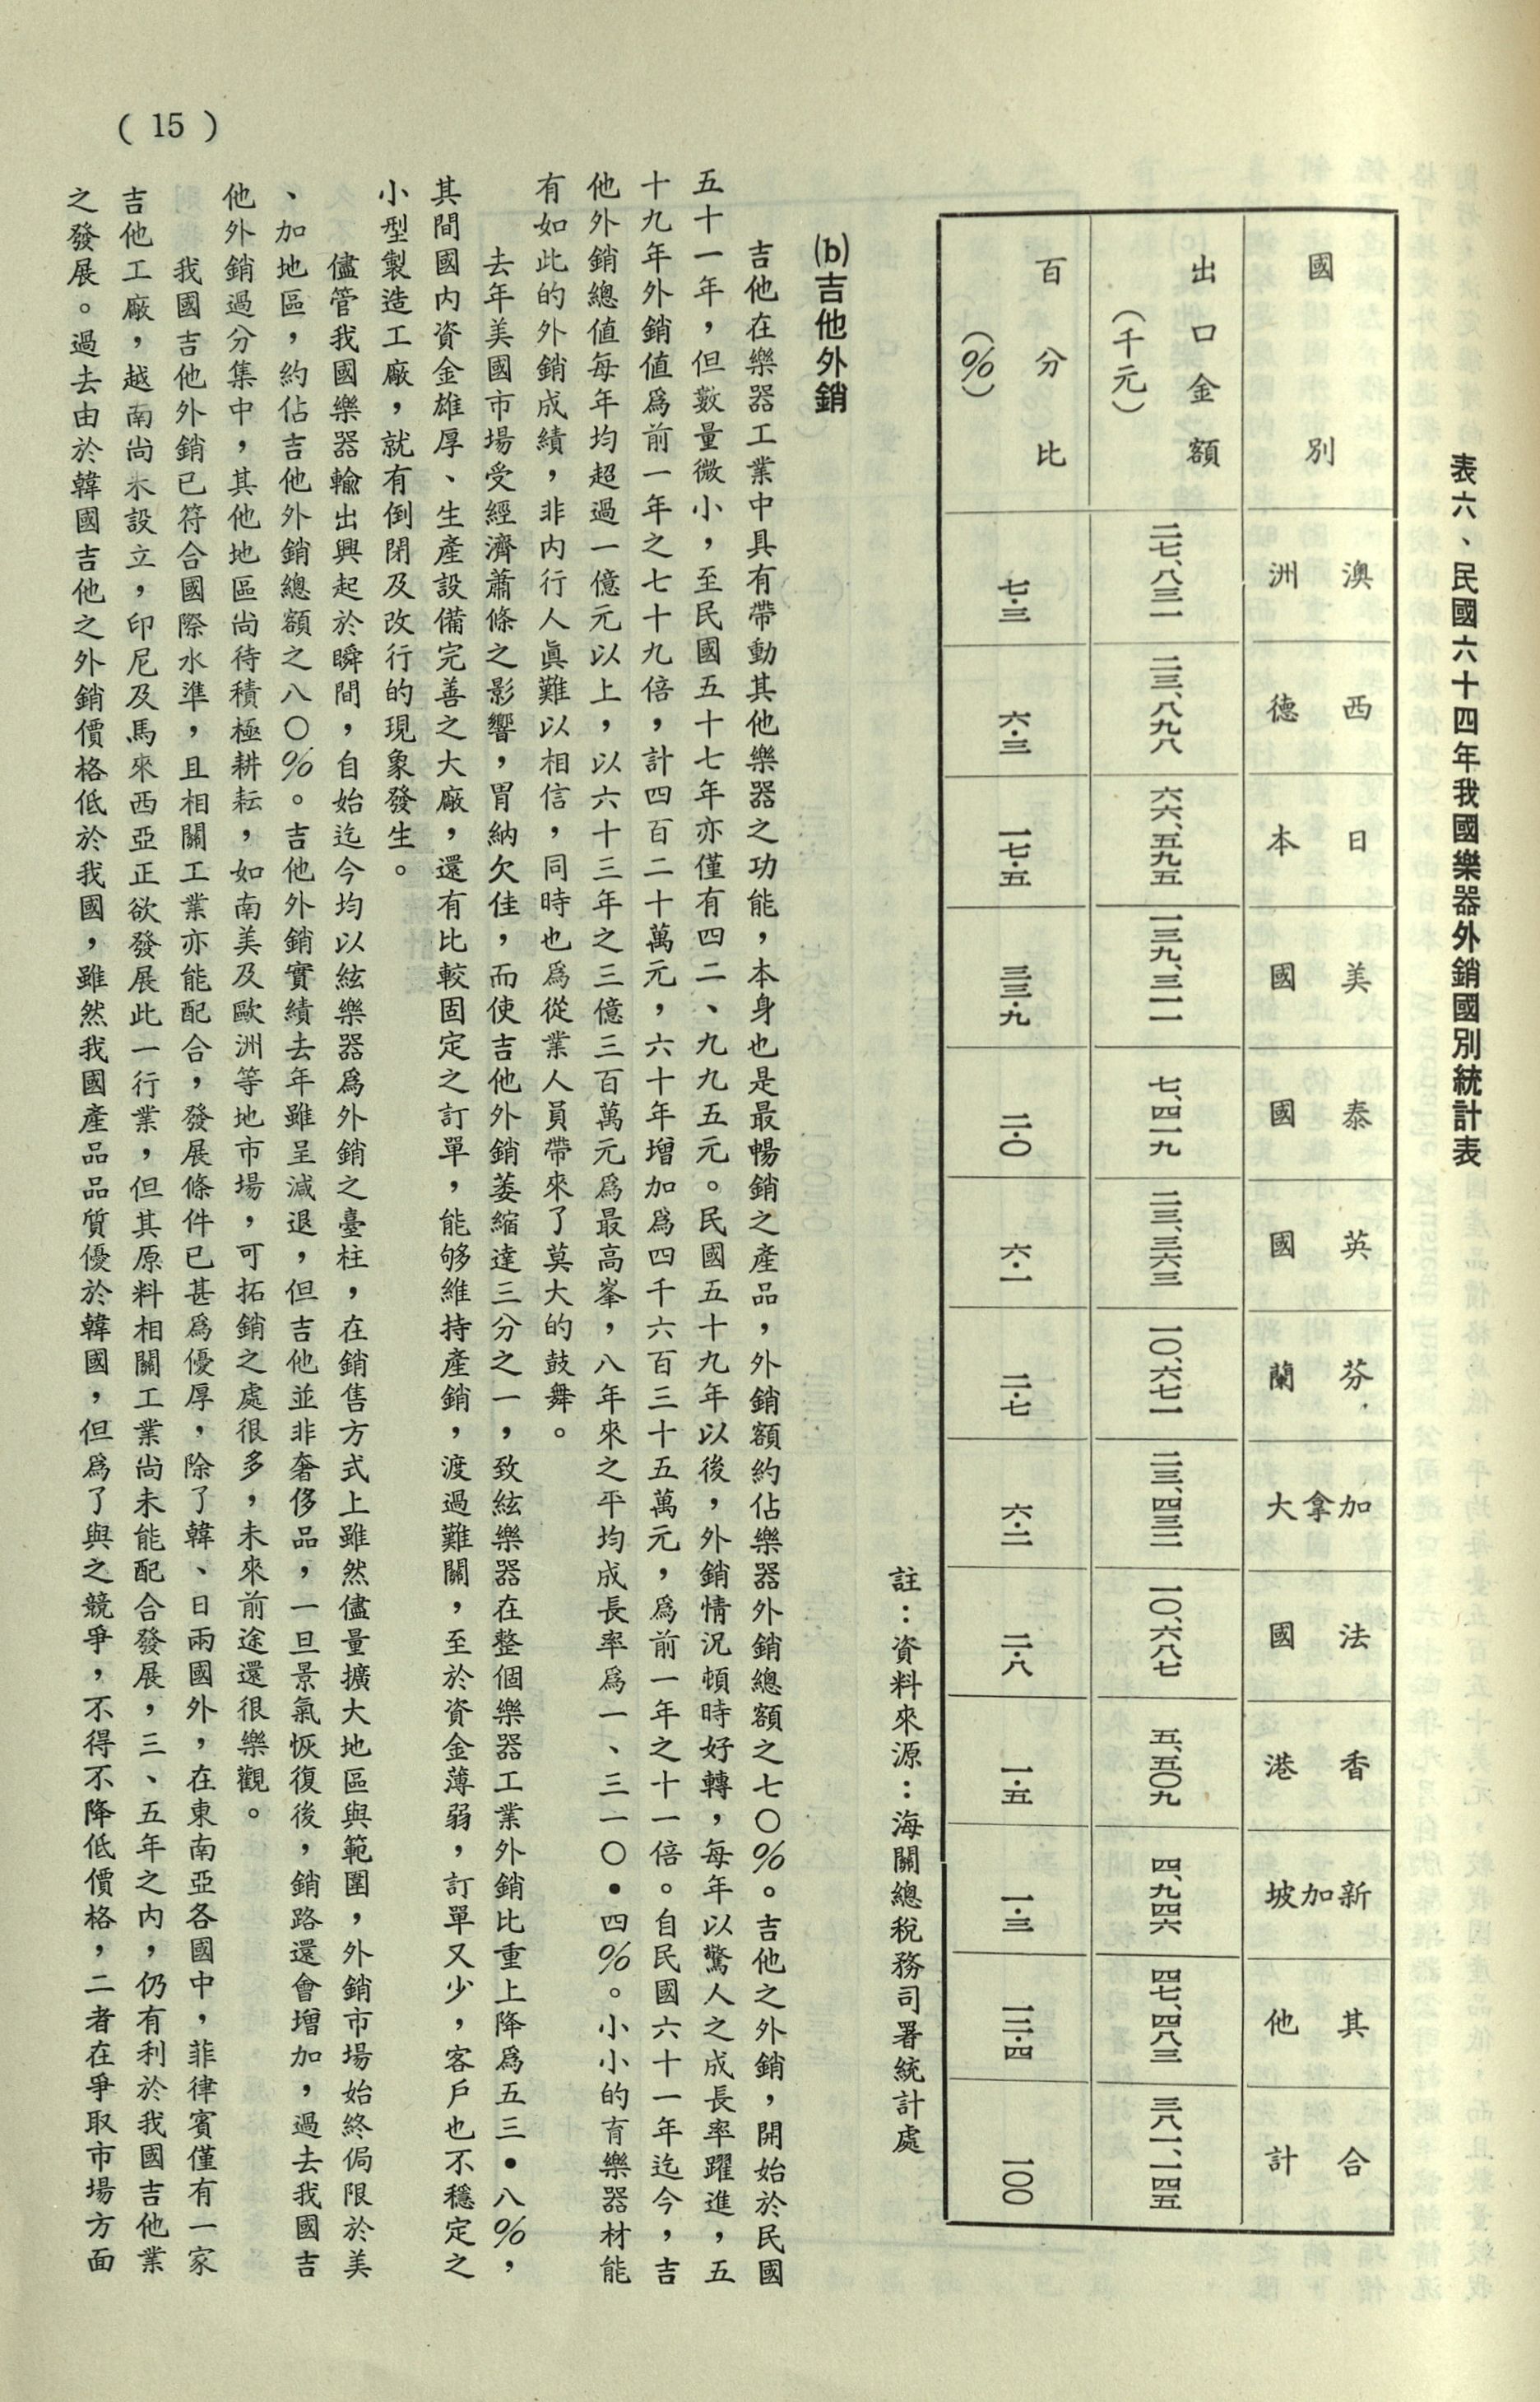 表六、民國六十四年我國樂器外銷國別統計表
國別 澳洲 西德 日本 美國 泰國 英國 芬蘭 加拿大 法國 香港 新加坡 其他 合計
出口金額(千元) 二七、八三一 二三、八九八 六六、五九五 一二九、三一一 七、四一九 二三、三六三 一〇、六七一 二三、四三二 一〇、六八七 五、五〇九 四、九四六 四七、四八三 三八一、一四五
百分比(%) 七・三 六・三 一七・五 三三・九 二・〇 六・一 二・七 六・二 二・八 一・五 一・三 一二・四 一〇〇
註：資料來源：海關總稅務司署統計處
(b)吉他外銷
吉他在樂器工業中具有帶動其他樂器之功能，本身也是最暢銷之產品，外銷額約佔樂器外銷總額之七〇%。吉他之外銷，開始於民國
五十一年，但數量微小，至民國五十七年亦僅有四二、九九五元。民國五十九年以後，外銷情況頓時好轉，每年以驚人之成長率躍進，五
十九年外銷值爲前一年之七十九倍，計四百二十萬元，六十年增加爲四千六百三十五萬元，爲前一年之十一倍。自民國六十一年迄今，吉
他外銷總值每年均超過一億元以上，以六十三年之三億三百萬元爲最高峯，八年來之平均成長率爲一、三一〇•四%。小小的育樂器材能
有如此的外銷成績，非內行人眞難以相信，同時也爲從業人員帶來了莫大的鼓舞。
去年美國市場受經濟蕭條之影響，胃納欠佳，而使吉他外銷萎縮達三分之一，致絃樂器在整個樂器工業外銷比重上降爲五三•八%，
其間國內資金雄厚、生產設備完善之大廠，還有比較固定之訂單，能够維持產銷，渡過難關，至於資金薄弱，訂單又少，客戶也不穩定之
小型製造工廠，就有倒閉及改行的現象發生。
儘管我國樂器輸出興起於瞬間，自始迄今均以絃樂器爲外銷之臺柱，在銷售方式上雖然儘量擴大地區與範圍，外銷市場始終侷限於美
、加地區，約佔吉他外銷總額之八〇%。吉他外銷實績去年雖呈減退，但吉他並非奢侈品，一旦景氣恢復後，銷路還會增加，過去我國吉
他外銷過分集中，其他地區尚待積極耕耘，如南美及歐洲等地市場，可拓銷之處很多，未來前途還很樂觀。
我國吉他外銷已符合國際水準，且相關工業亦能配合，發展條件已甚爲優厚，除了韓、日兩國外，在東南亞各國中，菲律賓僅有一家
吉他工廠，越南尚未設立，印尼及馬來西亞正欲發展此一行業，但其原料相關工業尚未能配合發展，三、五年之內，仍有利於我國吉他業
之發展。過去由於韓國吉他之外銷價格低於我國，雖然我國產品品質優於韓國，但爲了與之競爭，不得不降低價格，二者在爭取市場方面
( 15 )